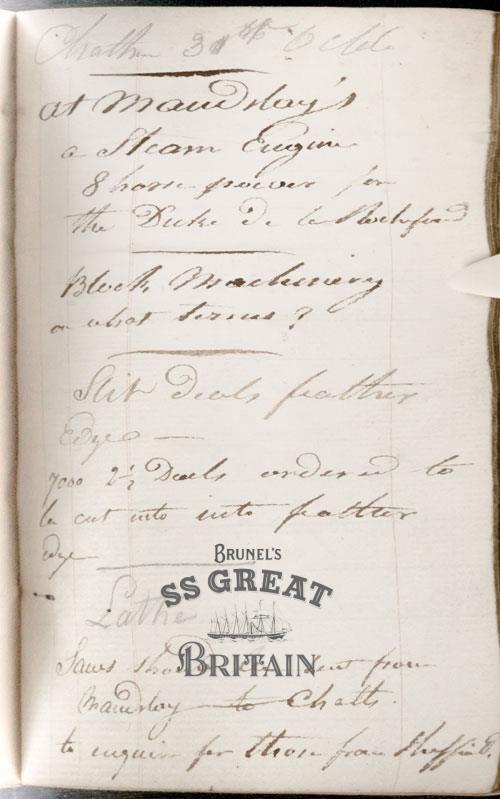 Chatham 31st Octbr
at Maudslay's
a Steam Engine
8 horse power for
the Duke de la
Block Machinery
on what terms?
Slit Deals feather
Edge —
7000 2½ Deals ordered to
be cut into into feather
edge
BRUNEL'S
SS GREAT
BRITAIN
Lathe
Saws should be sent from
Maudslay to Chatts.
to enquire for those from Sheffield.